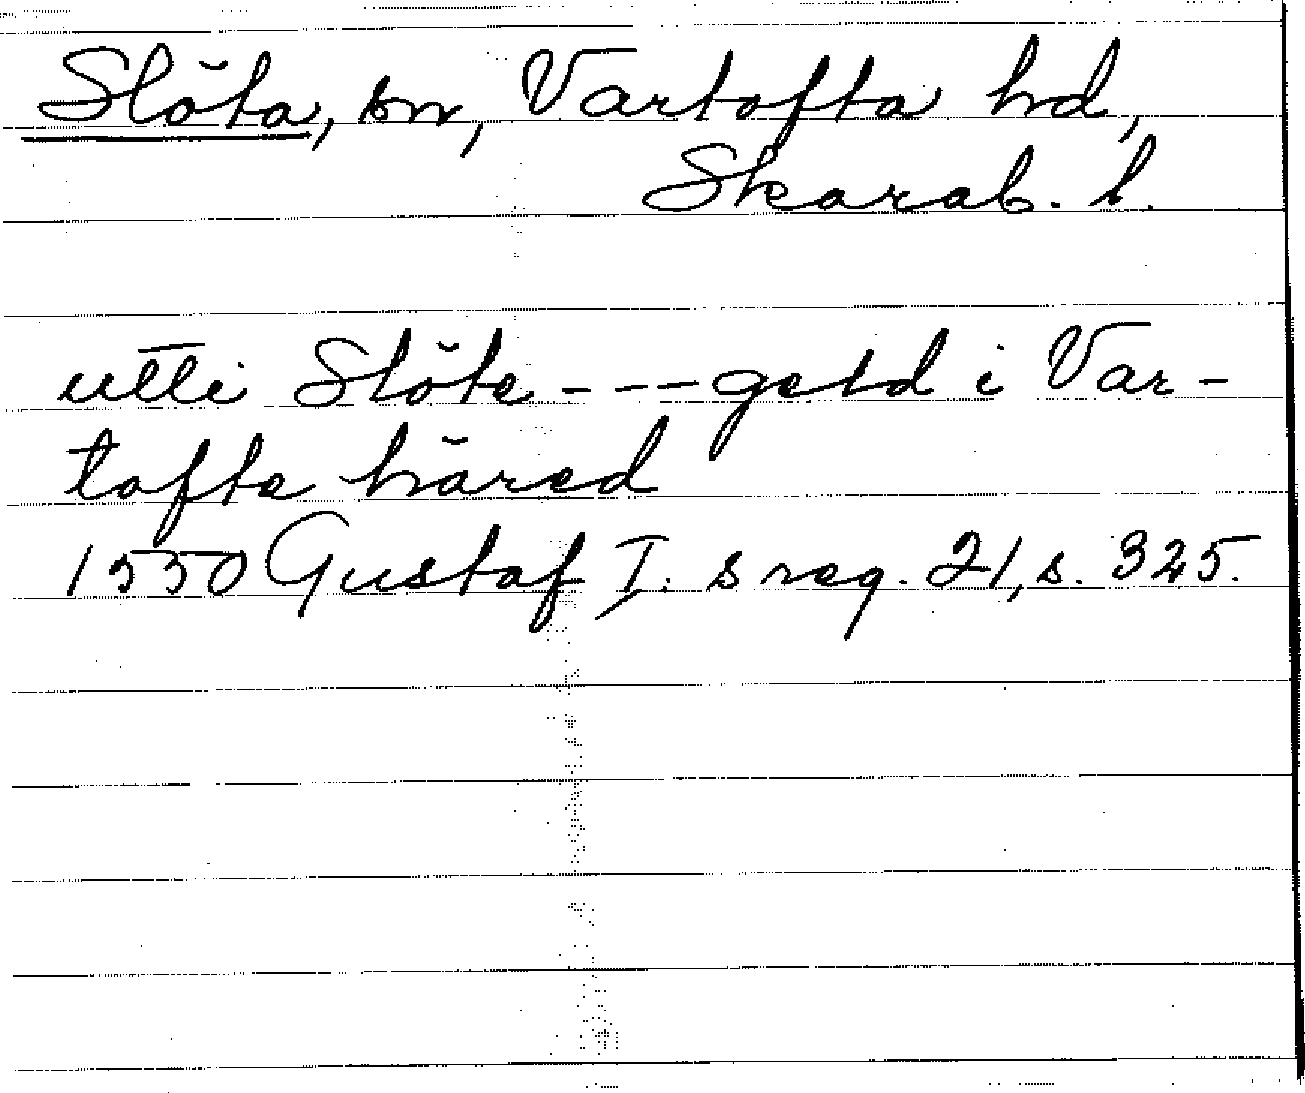 Slöta, sn, Vartofta hd,
Skarab. l.
utti Slöte - - - geld i Var-
tofte häred
1550 Gustaf I:s reg. 21, s. 325.